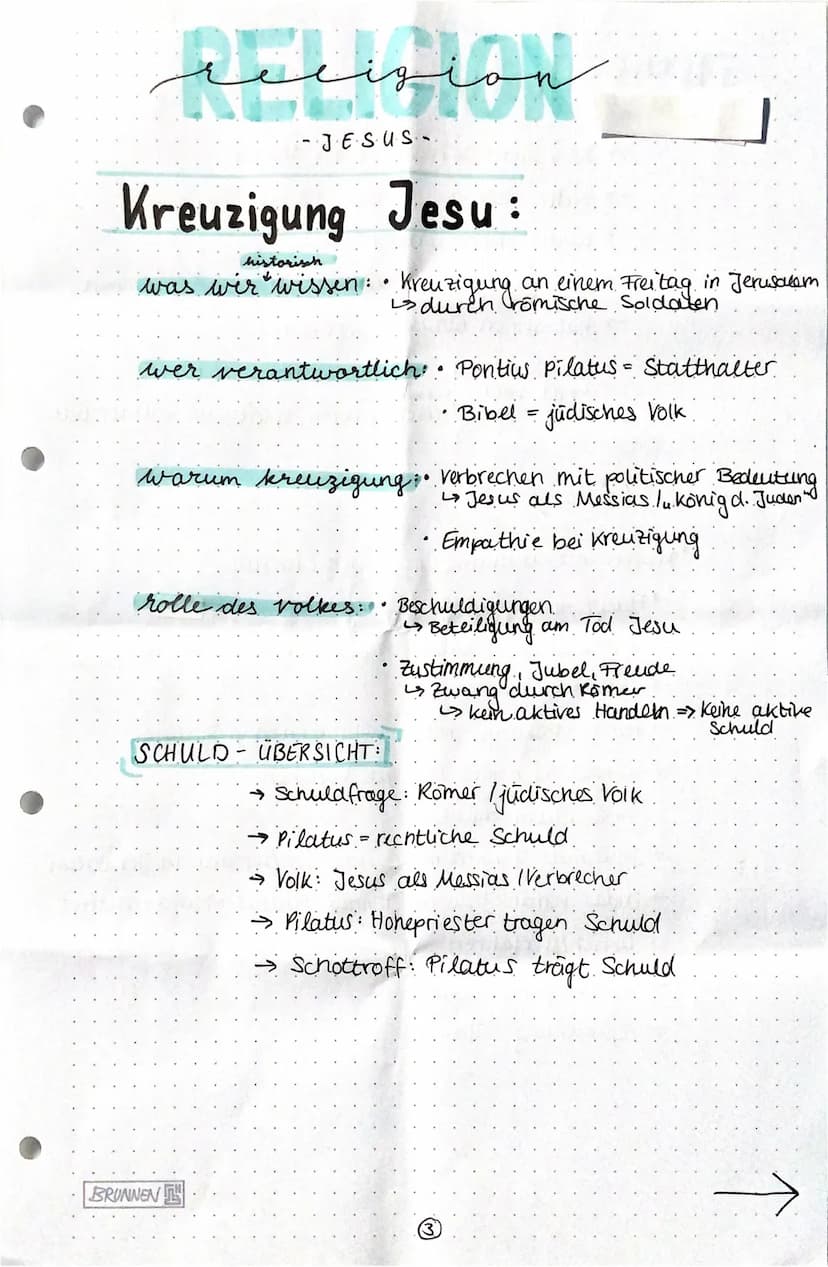 RELIGION
religion
- JESUS -
Kreuzigung Jesu:
historisch
was wir wissen: • Kreuzigung an einem Freitag in Jerusalem
↳ durch römische Soldaten
wer verantwortlich: • Pontius Pilatus = Statthalter
• Bibel = jüdisches Volk
warum kreuzigung: • Verbrechen mit politischer Bedeutung
↳ Jesus als Messias / „König d. Juden“
• Empathie bei Kreuzigung
rolle des volkes: • Beschuldigungen
↳ Beteiligung am Tod Jesu
• Zustimmung, Jubel, Freude
↳ Zwang durch Römer
↳ kein aktives Handeln => Keine aktive
Schuld
SCHULD - ÜBERSICHT:
→ Schuldfrage: Römer / jüdisches Volk
→ Pilatus = rechtliche Schuld
→ Volk: Jesus als Messias / Verbrecher
→ Pilatus: Hohepriester tragen Schuld
→ Schottroff: Pilatus trägt Schuld
BRUNNEN
3